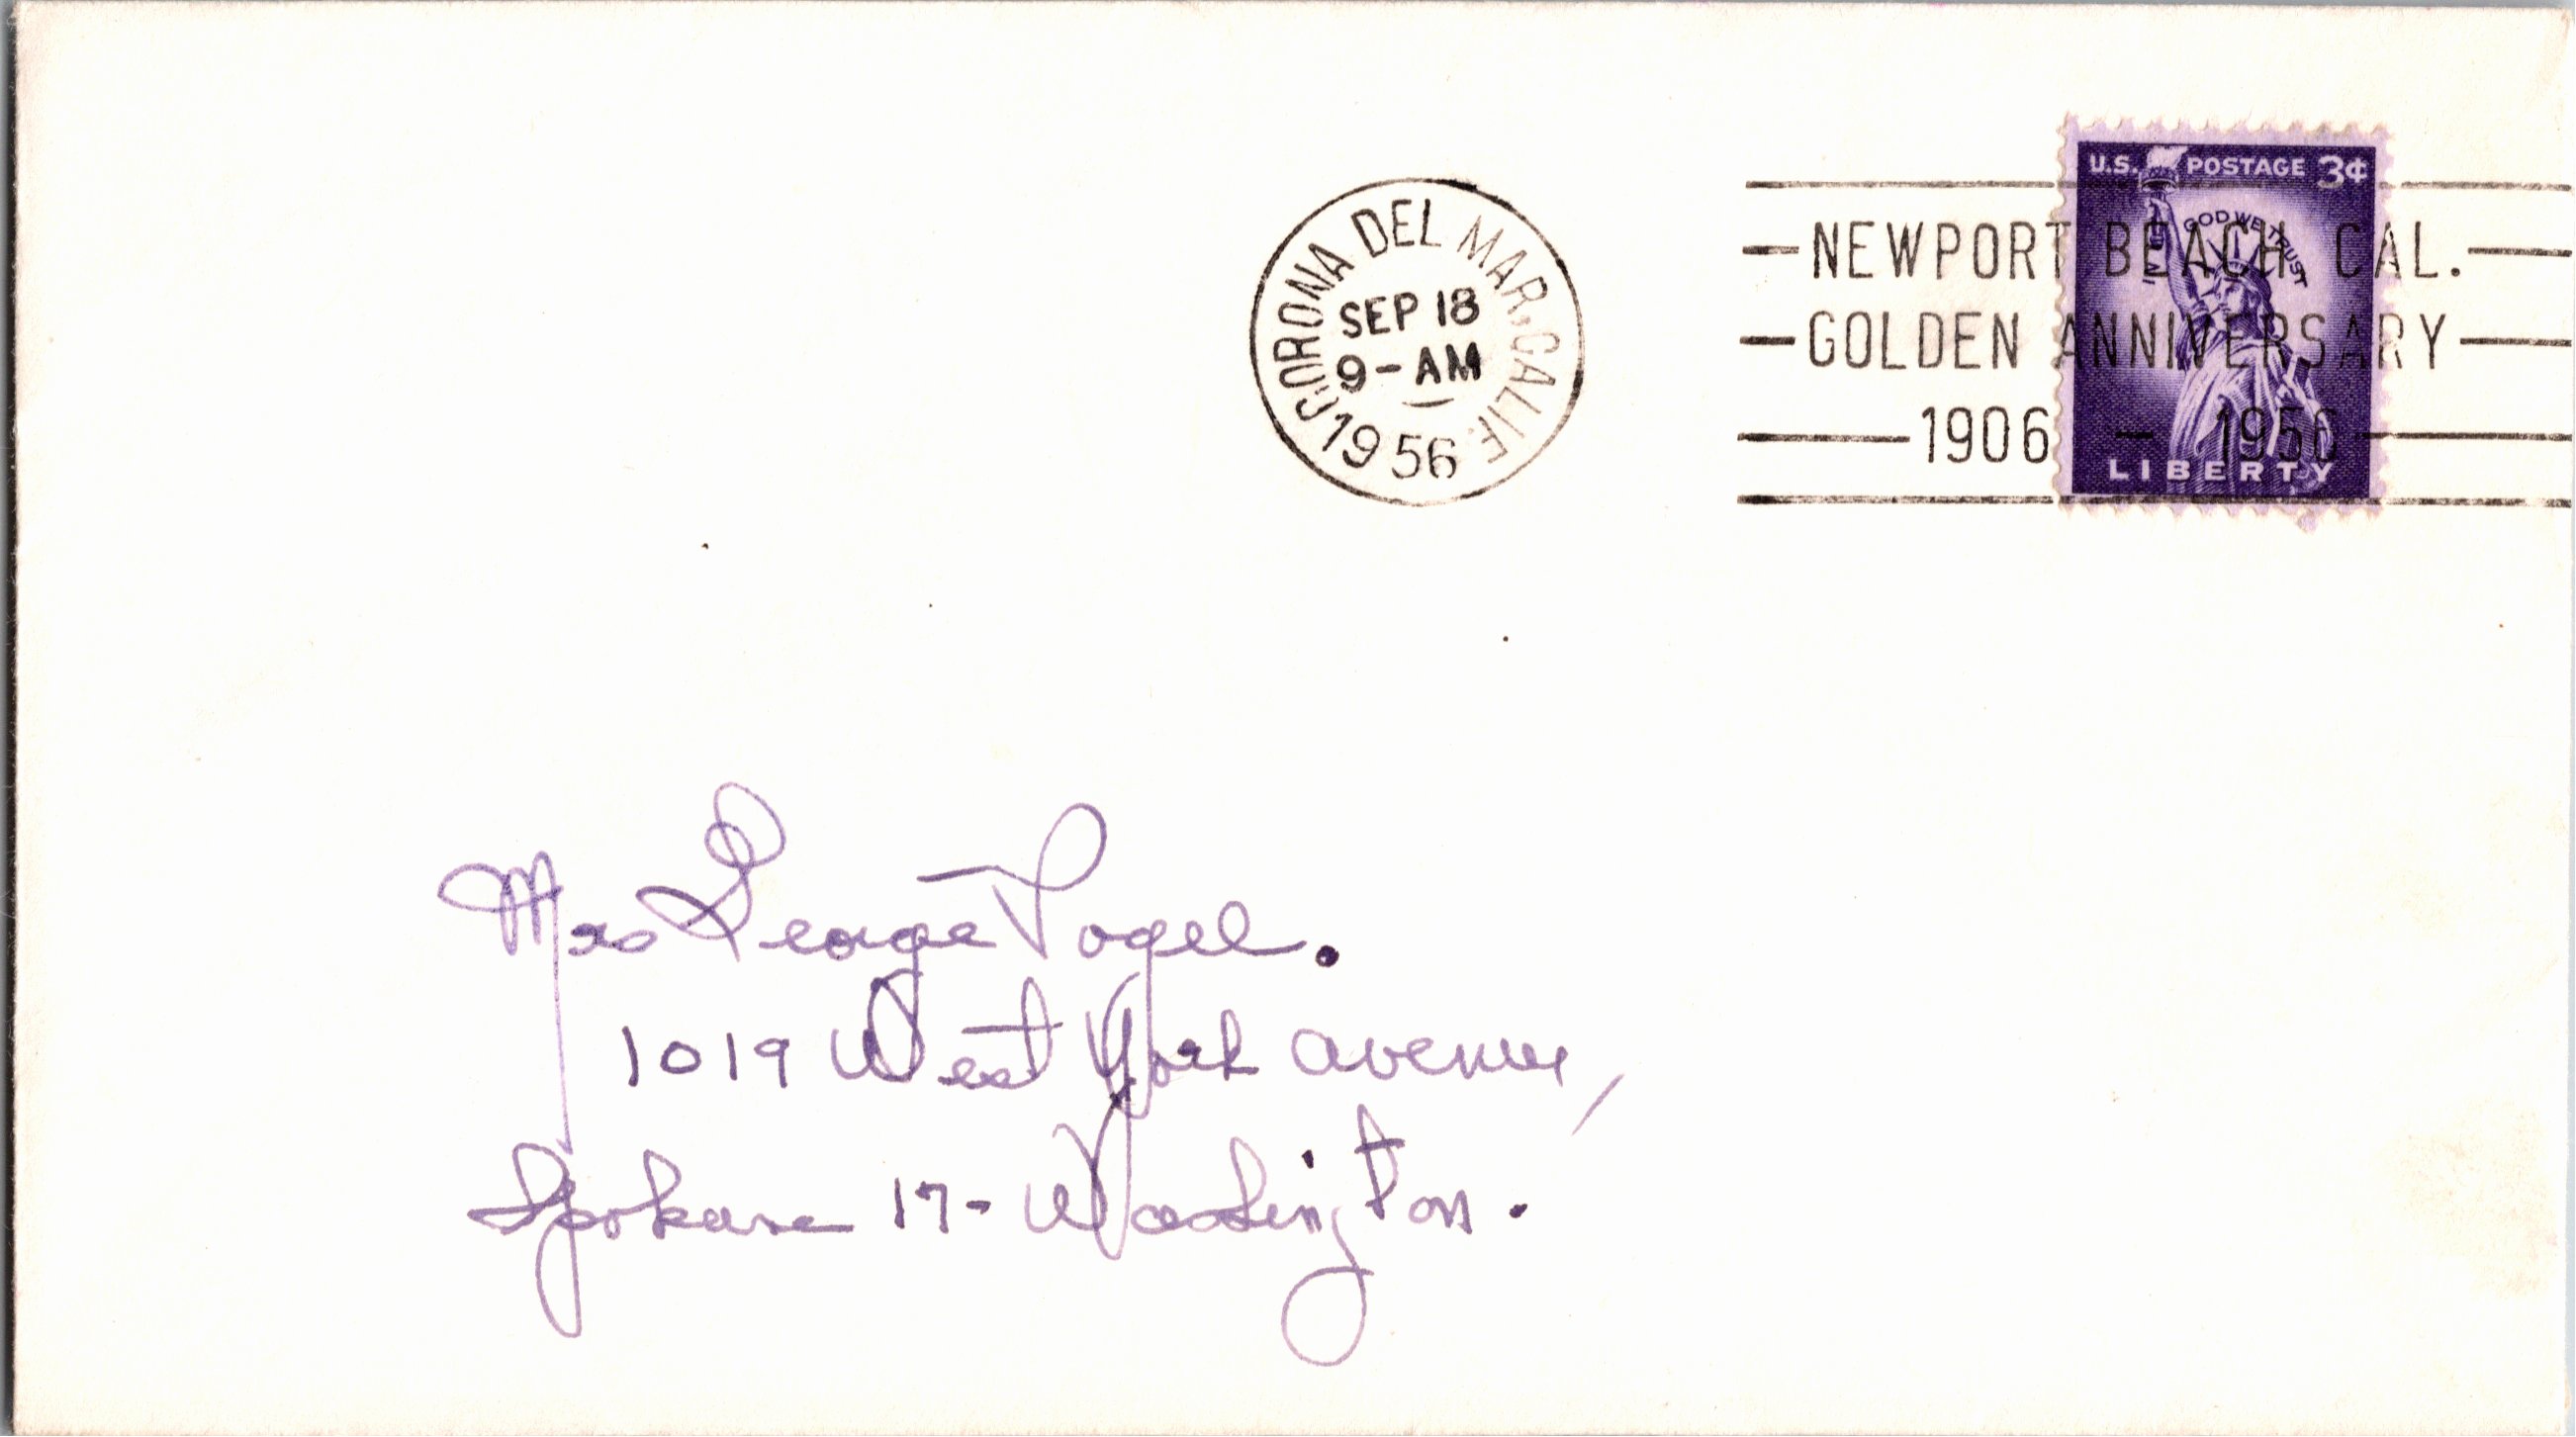 CORONA DEL MAR, CALIF.
SEP 18
9-AM
1956
U.S. POSTAGE 3¢
IN GOD WE TRUST
LIBERTY
NEWPORT BEACH, CAL.
GOLDEN ANNIVERSARY
1906 - 1956
Mrs George Vogel.
1019 West York Avenue,
Spokane 17- Washington.